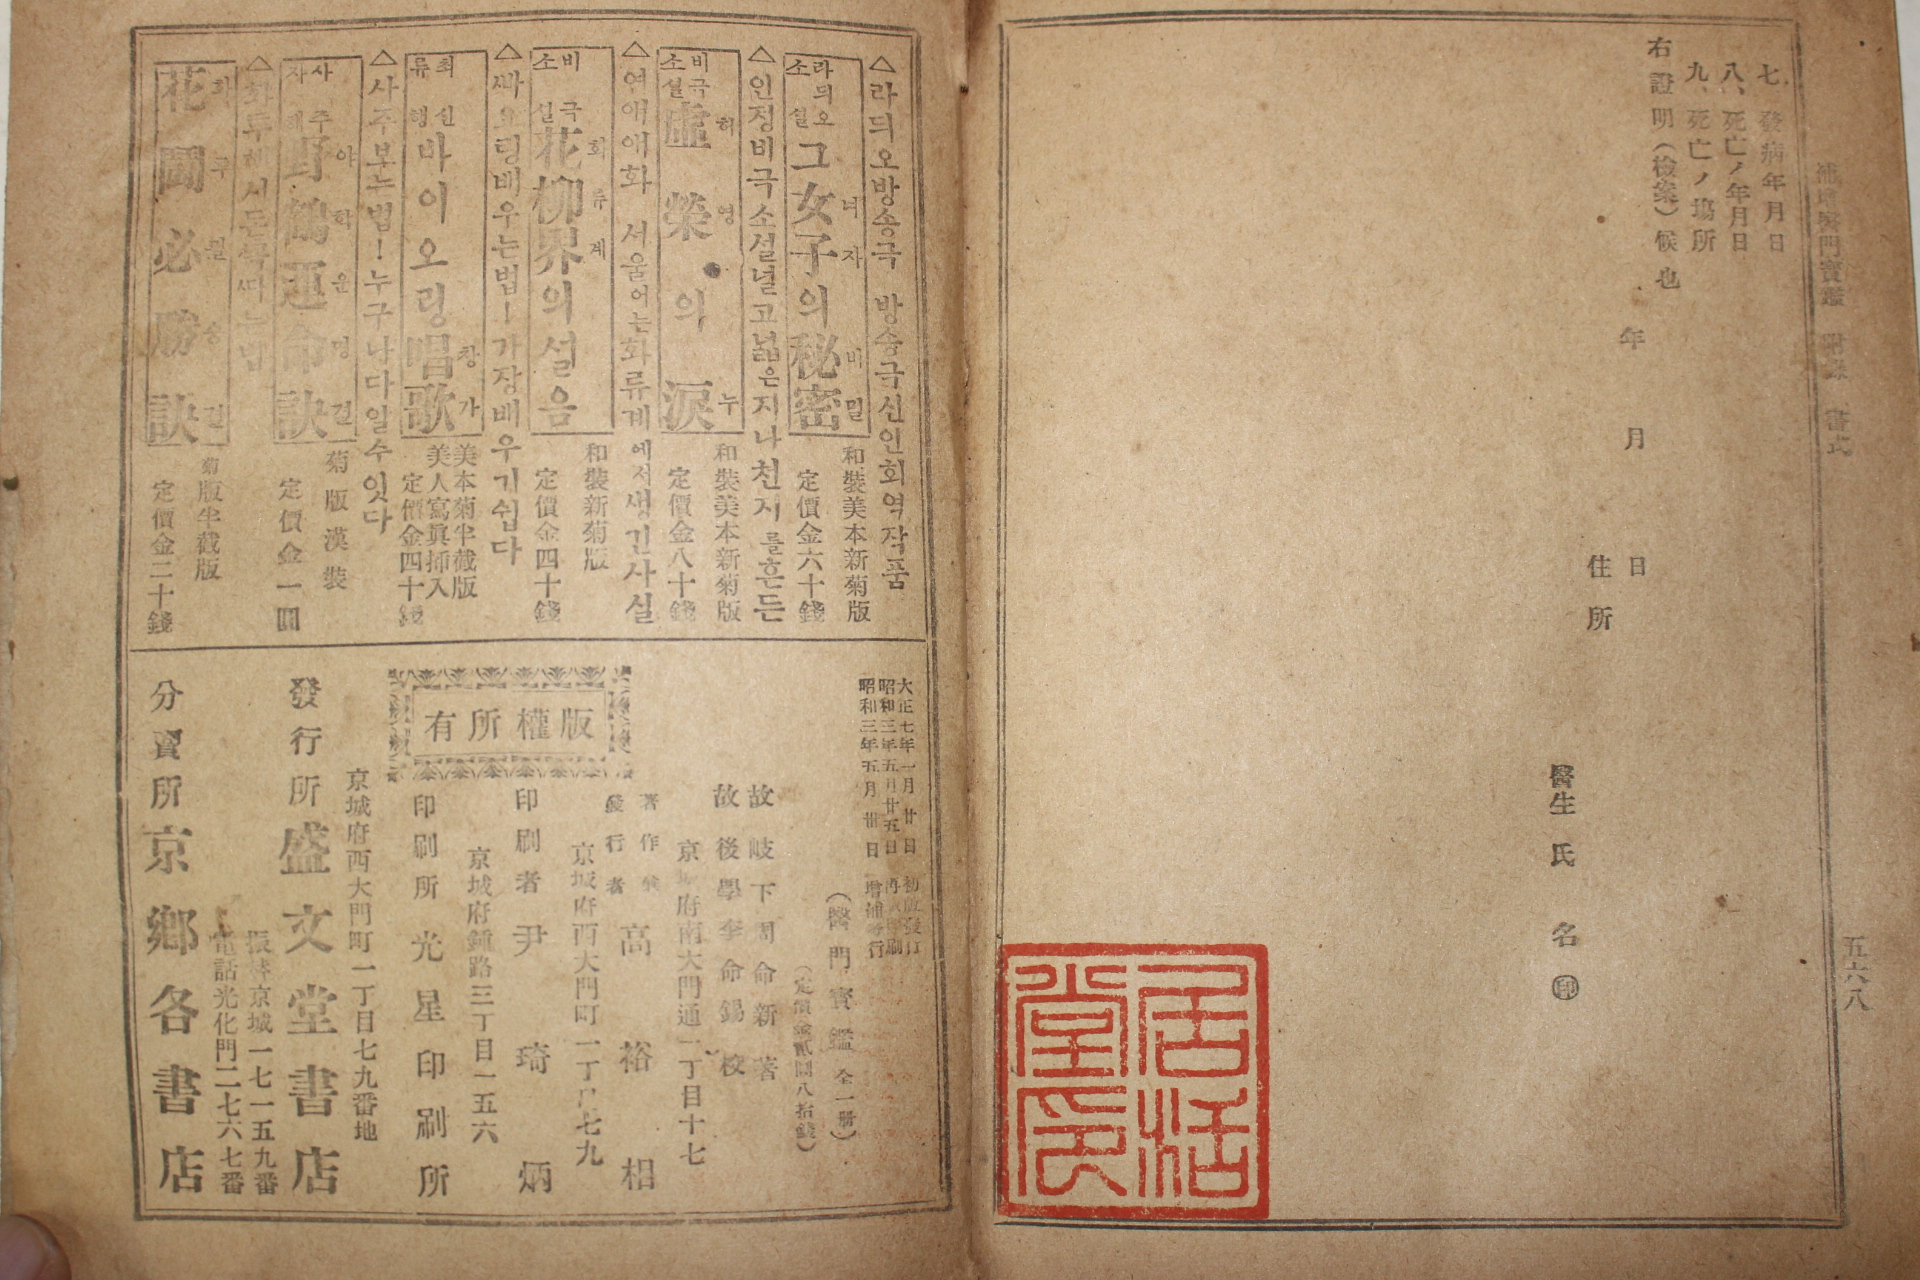 補增醫門寶鑑 附錄 書式
五六八
七、發病年月日
八、死亡ノ年月日
九、死亡ノ塲所
右證明(檢案)候也
年 月 日
住所
醫生 氏 名 ㊞
居活堂印
△라듸오방송극 방송극신인회역작품
라듸오소설 그女子의秘密 녀자 비밀
和裝美本新菊版
定價金六十錢
△인정비극소설널고넓은지나천지를흔든
비극소설 虛榮의淚 허영 누
和裝美本新菊版
定價金八十錢
△연애애화 서움어는화류계에서생긴사실
비극소설 花柳界의설음 화류계
和裝新菊版
定價金四十錢
△빠요링배우는법!가장배우기쉽다
최신류행 바이오링唱歌 창가
美本菊半截版
美人寫眞揷入
定價金四十錢
△사주보는법!누구나다알수잇다
사주 野鶴運命訣 야학운명결
菊版漢裝
定價金一圓
△화투
花鬪必勝訣
菊版半截版
定價金二十錢
大正七年一月廿日 初版發行
昭和三年五月廿五日
昭和三年五月卅日 增補
(醫門寶鑑 全一册)
(定價金貳圓八拾錢)
故 岐下周命新 著
故 後學李命錫 校
京城府南大門通一丁目十七
著作 發行者 高裕相
京城府西大門町一丁目七九
印刷者 尹琦炳
京城府鍾路三丁目一五六
印刷所 光星印刷所
版權所有
京城府西大門町一丁目七九番地
發行所 盛文堂書店
振替京城一七一五九番
電話光化門二七六七番
分賣所 京鄕各書店